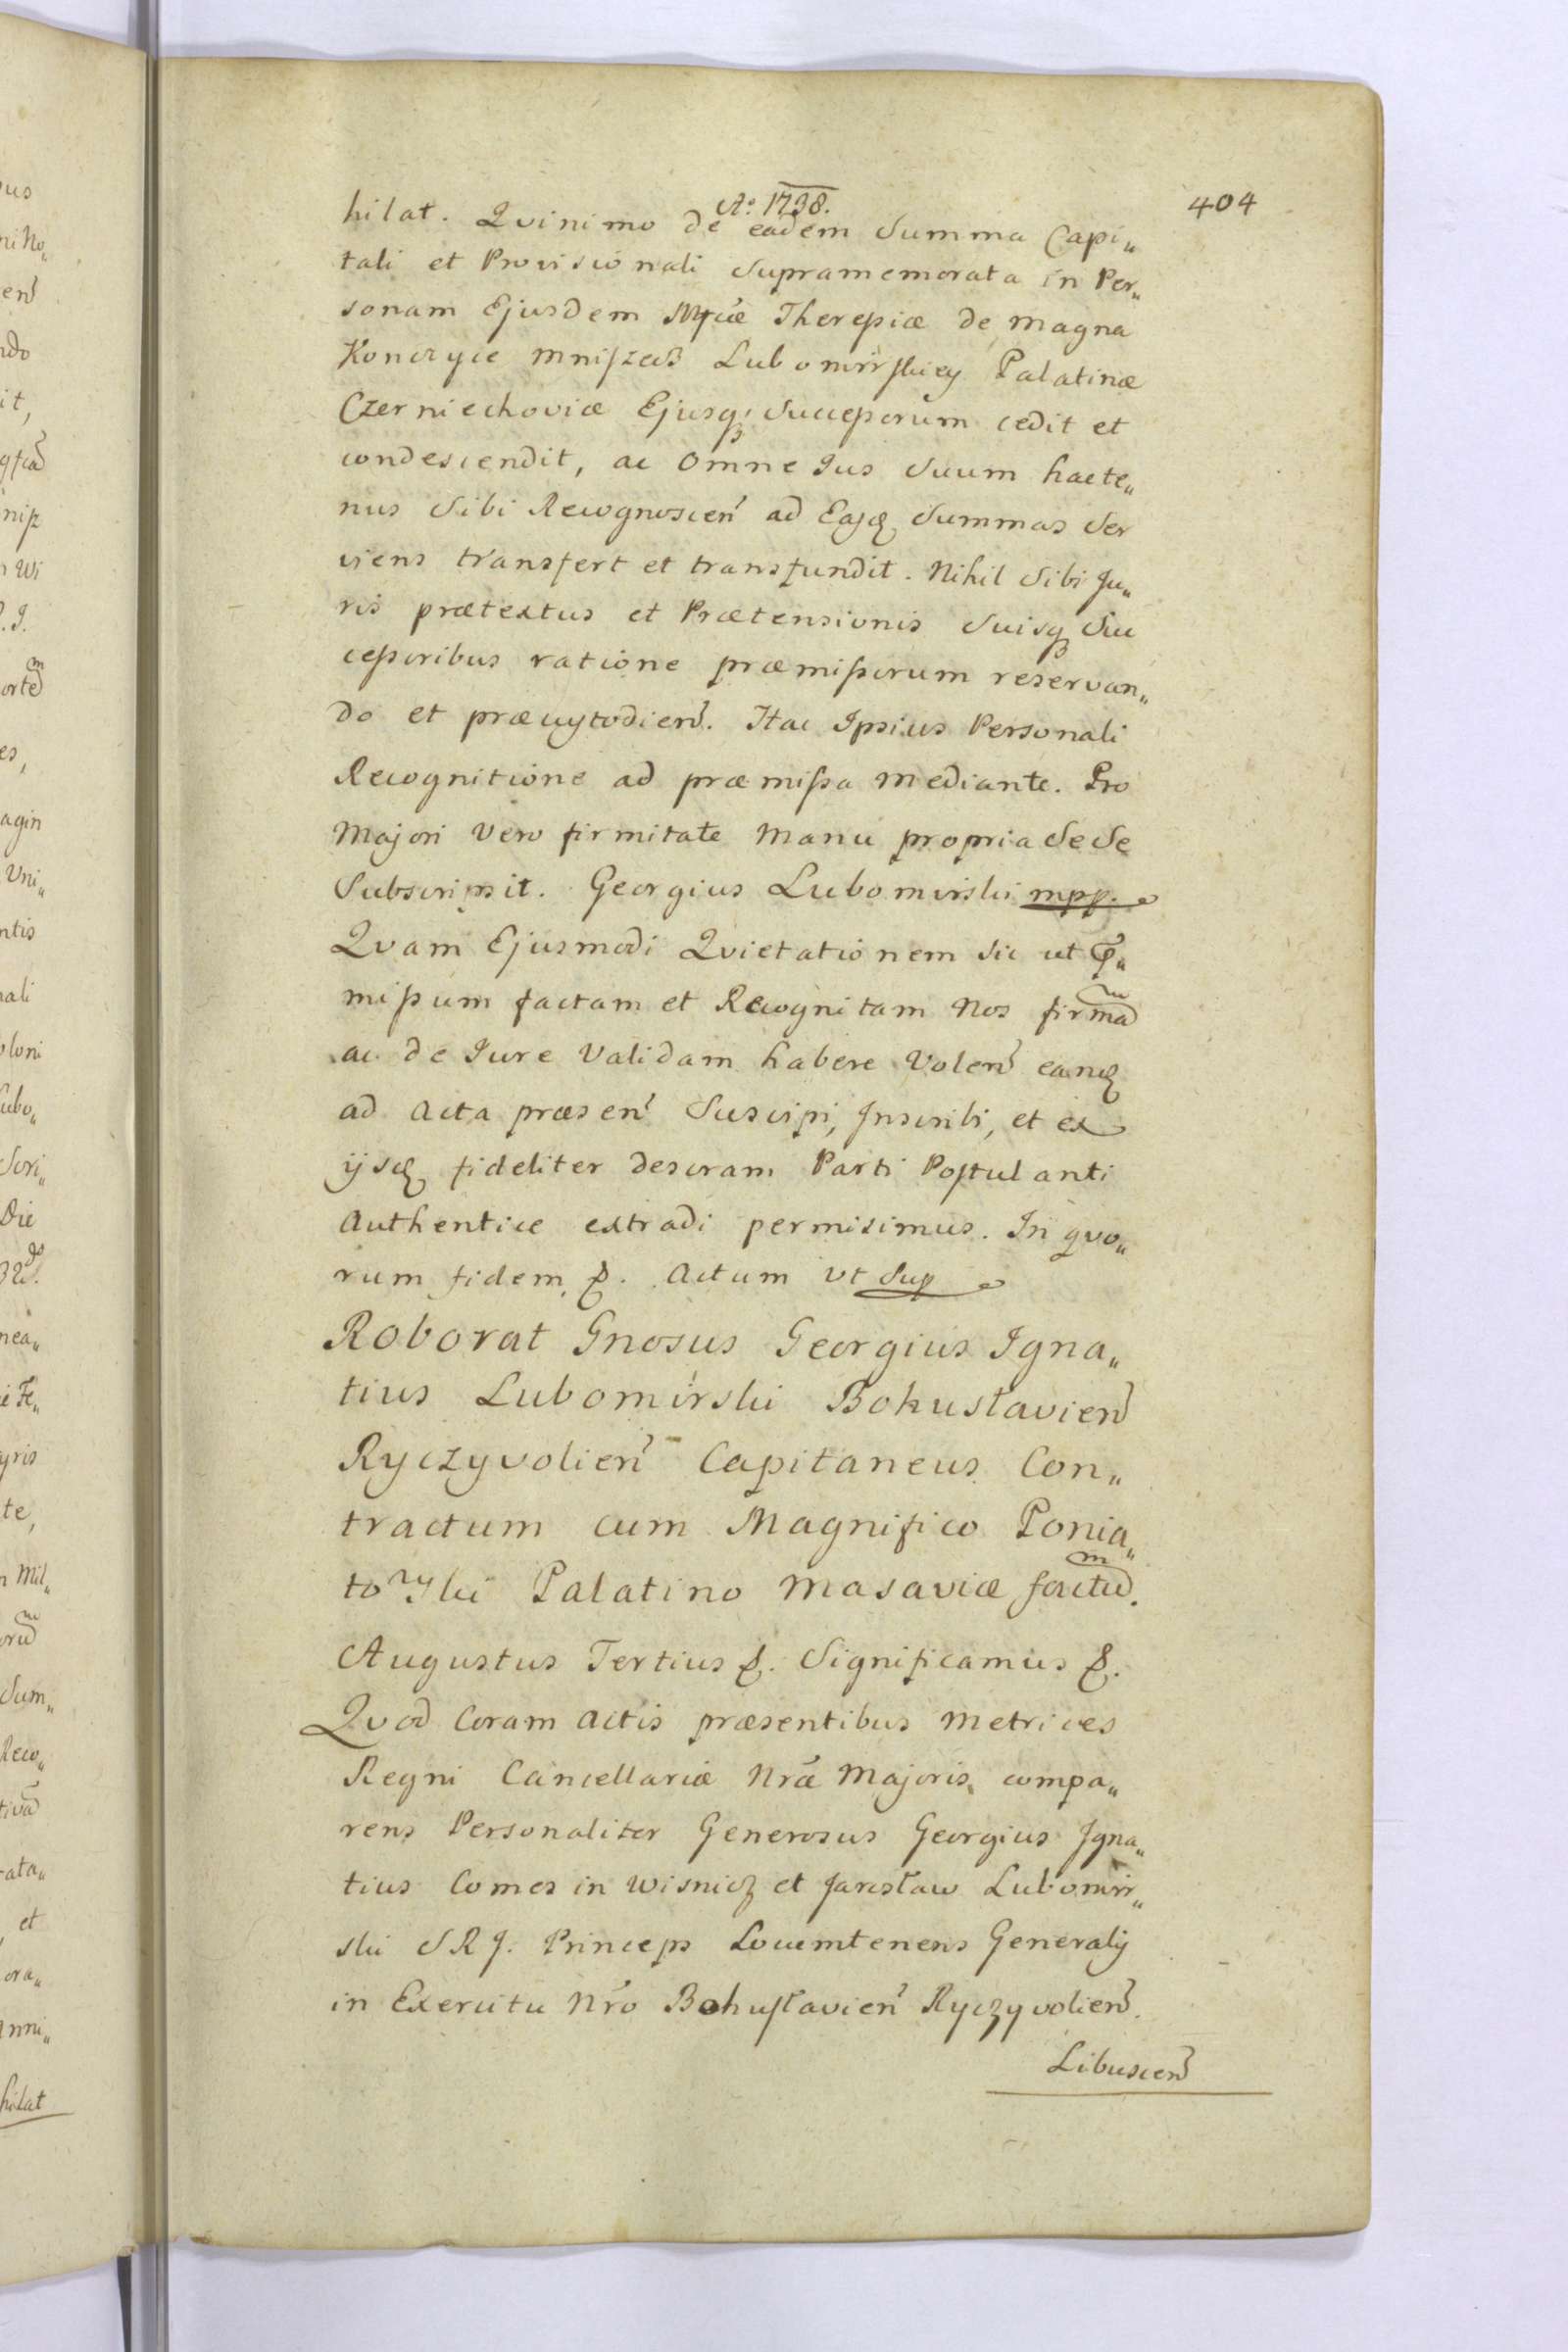 Ao 1738.
404
hilat. Qvinimo de eadem Summa Capi„
tali et Provisionali Supramemorata in Per„
sonam Ejusdem Mfcæ Theressiæ de magna
Konczyce Mniszech Lubomirskiey Palatinæ
Czerniechoviæ Ejusq; Successorum cedit et
condescendit, ac Omne Jus Suum hacte„
nus Sibi Recognoscen ad Easdq Summas Ser
viens transfert et transfundit. Nihil Sibi Ju„
ris prætextus et Prætensionis Suisq Suc
cessoribus ratione præmissorum reservan„
do et præcustodien. Hac Ipsius Personali
Recognitione ad præmissa mediante. Pro
Majori vero firmitate Manu propria Se Se
Subscripsit. Georgius Lubomirski mpp.
Qvam Ejusmodi Qvietationem sic ut P„
missum factam et Recognitam Nos firmam
ac de Jure Validam habere Volen eandq
ad Acta præsen Suscipi, Inscribi, et ex
ijsdq fideliter descram Parti Postulanti
Authentice extradi permisimus. In qvo„
rum fidem &. Actum vt Sup
Roborat Gnosus Georgius Igna„
tius Lubomirski Bohuslavien
Ryczyvolien Capitaneus Con„
tractum cum Magnifico Ponia„
towski Palatino Masaviæ factum.
Augustus Tertius &. Significamus &.
Qvod Coram Actis præsentibus Metrices
Regni Cancellariæ Nræ Majoris, compa„
rens Personaliter Generosus Georgius Igna„
tius Comes in Wisnicz et Jarosław Lubomir„
ski S R J. Princeps Locumtenens Generalis
in Exercitu Nro Bohuslavien Ryczyvolien.
Libuscen